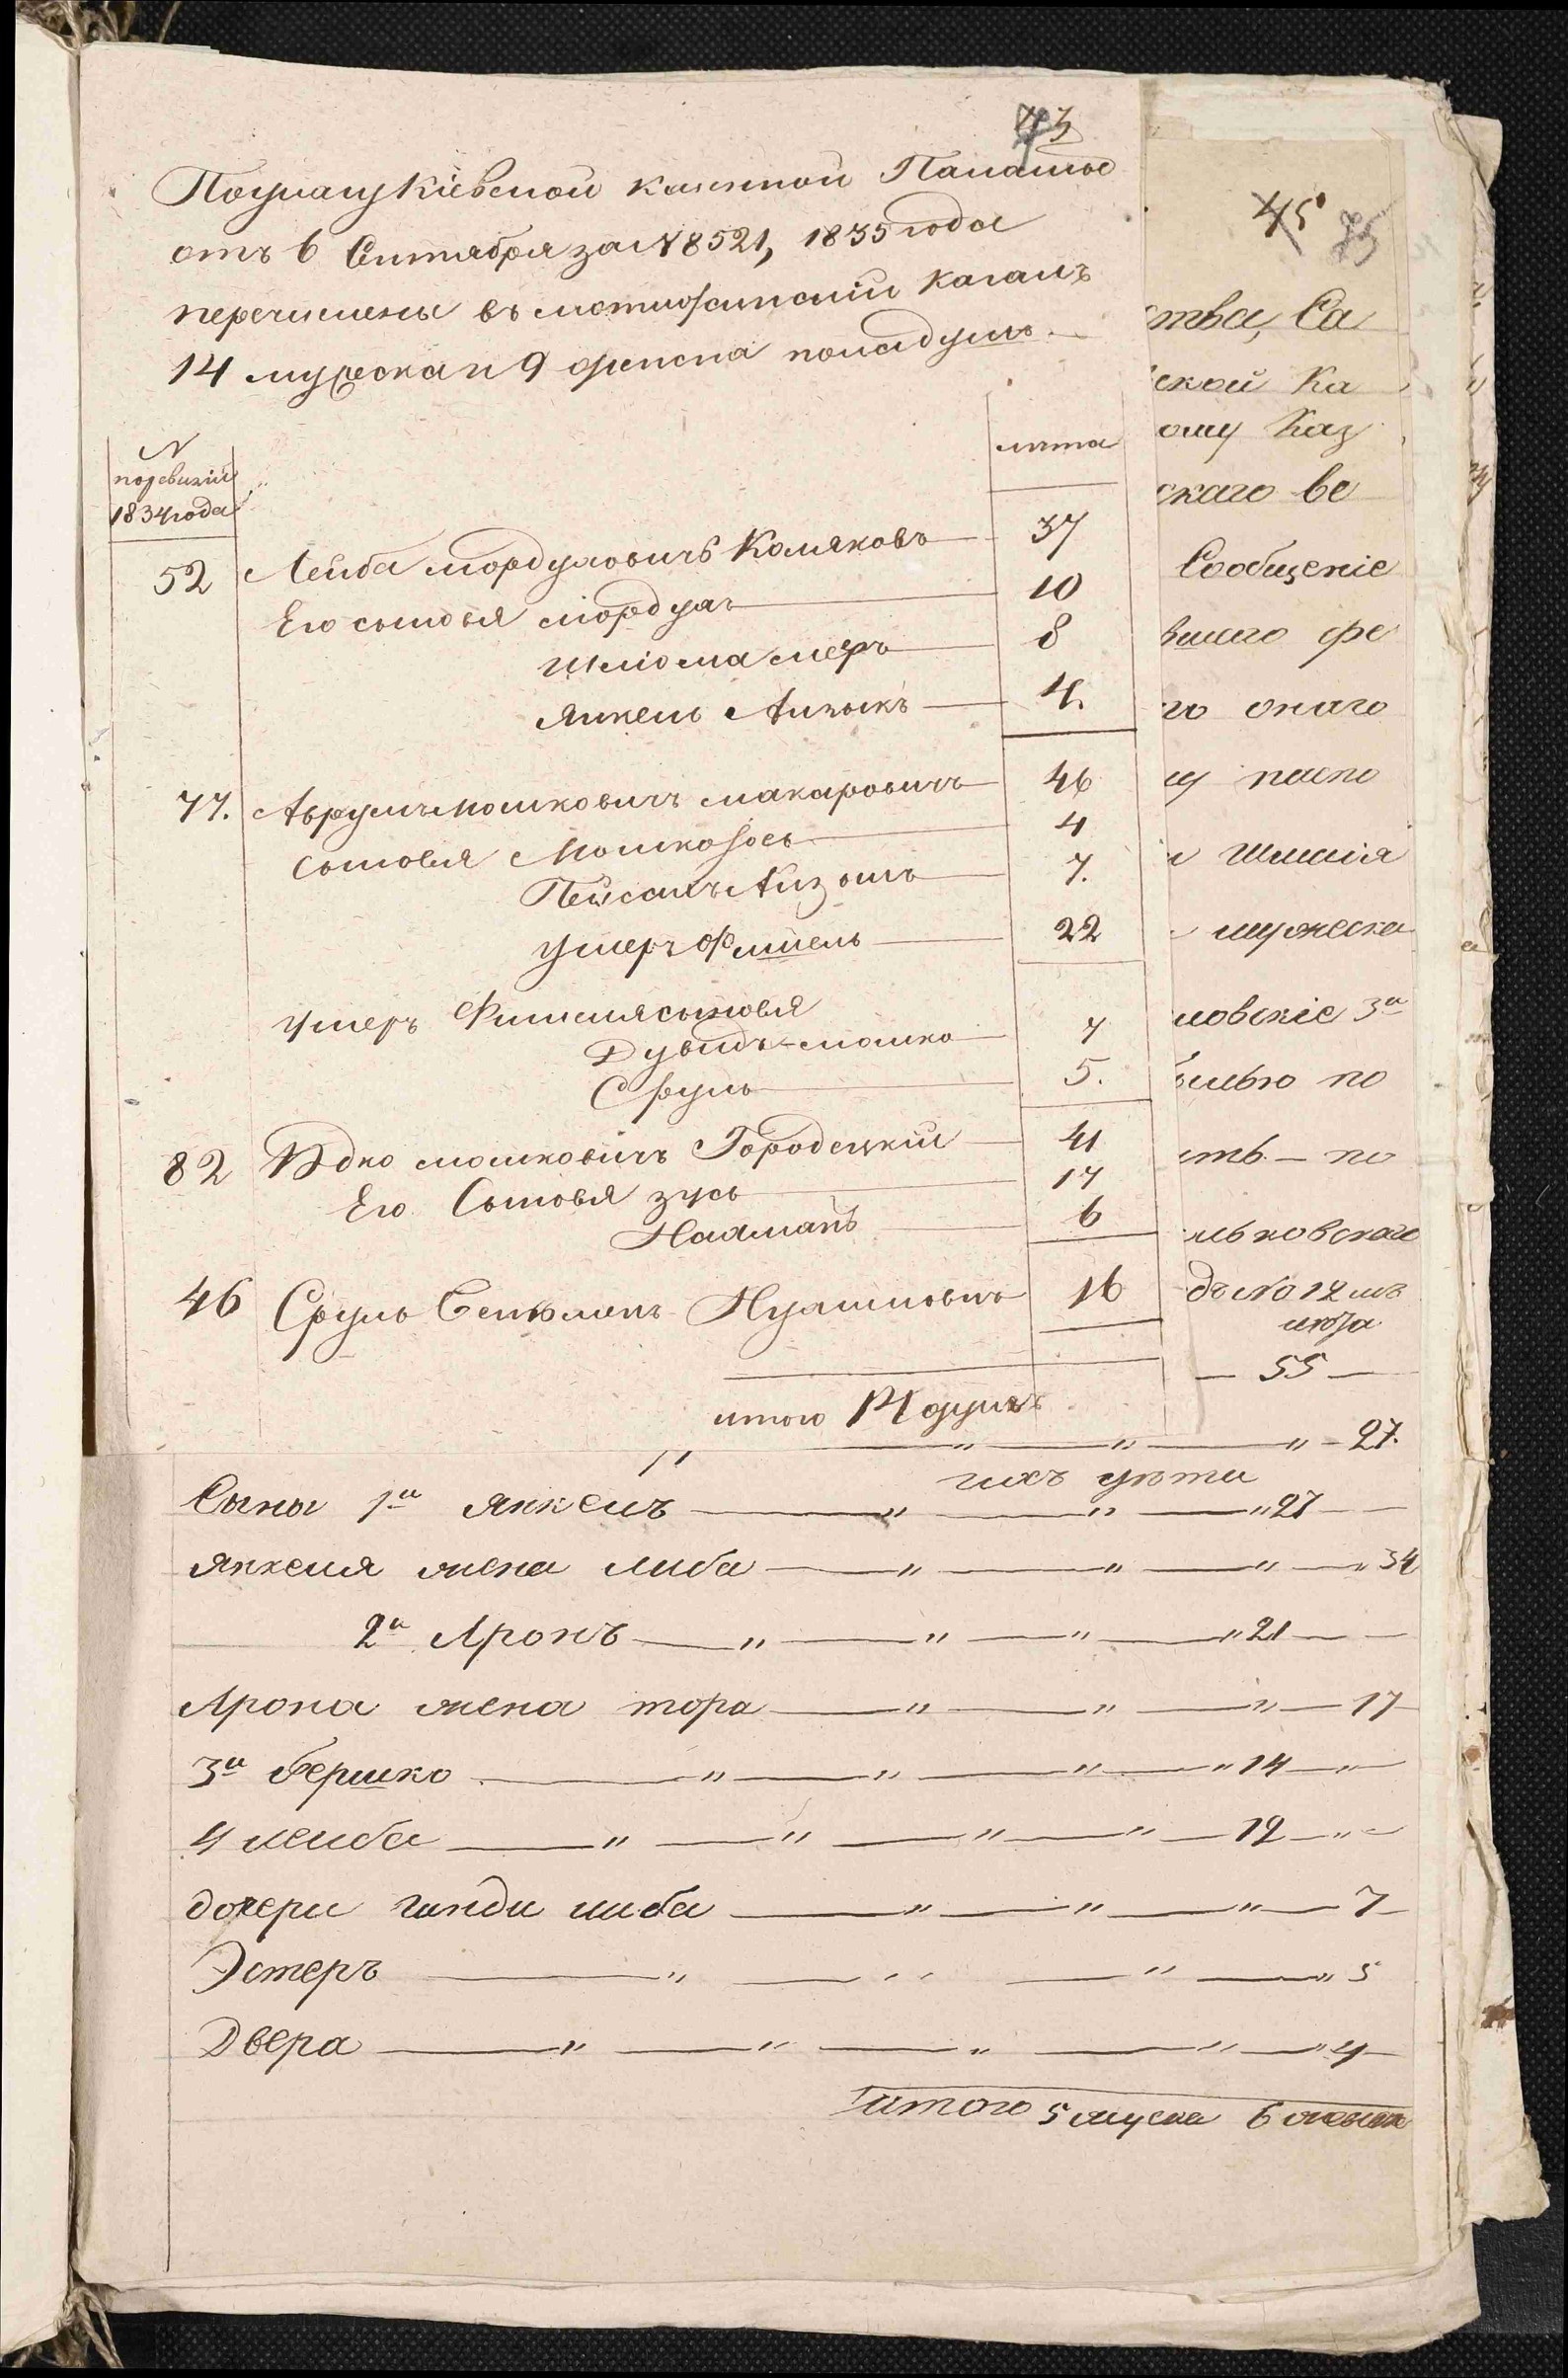 43
По указу Кіевской казенной Палаты
отъ 6 Сентября за N 8521, 1835 года
перечислены въ мотыжинскій кагалъ
14 мужеска и 9 женска пола душъ
N
по ревизіи
1834 года
лѣта
52 Лейба Мордуховичъ Комяковъ 37
Его сыновья Мордухъ 10
Шліома меръ 8
Янкель Айзыкъ 4.
77. Аврумъ Мошковичъ Макаровичъ 46
сыновья Мошко Іось 4
Пейсахъ Айзомъ 7.
Умеръ Фишель 22
умеръ Фишеля сыновья
Дувидъ-Мошко 7
Сруль 5.
82 Идко Мошковичъ Городецкій 41
Его Сыновья зусь 17
Нахманъ 6
46 Сруль Сельманъ Нухимовичъ 16
итого 14 душъ
45 75
ства, Са
ской Ка
ому Каз
скаго ве
Сообщеніе
вшаго фе
го онаго
и Шмаія
мужеска
ловскіе 3й
былью по
сть - по
льковскаго
дъ No 12 мъ
— 55 —
" " " 27.
ихъ дѣти
Сыны 1й Янкель " " " 27
Янкеля жена Либа " " " " 34
2й Аронъ " " " " 21
Арона жена тора " " " 17
3й Бершко " " " " 14 "
4 Лейба " " " " 12 "
дочери гинди либа " " " 7
Эстеръ " " " " 5
Двера " " " " " 4
итого 5 мужска 6 женска